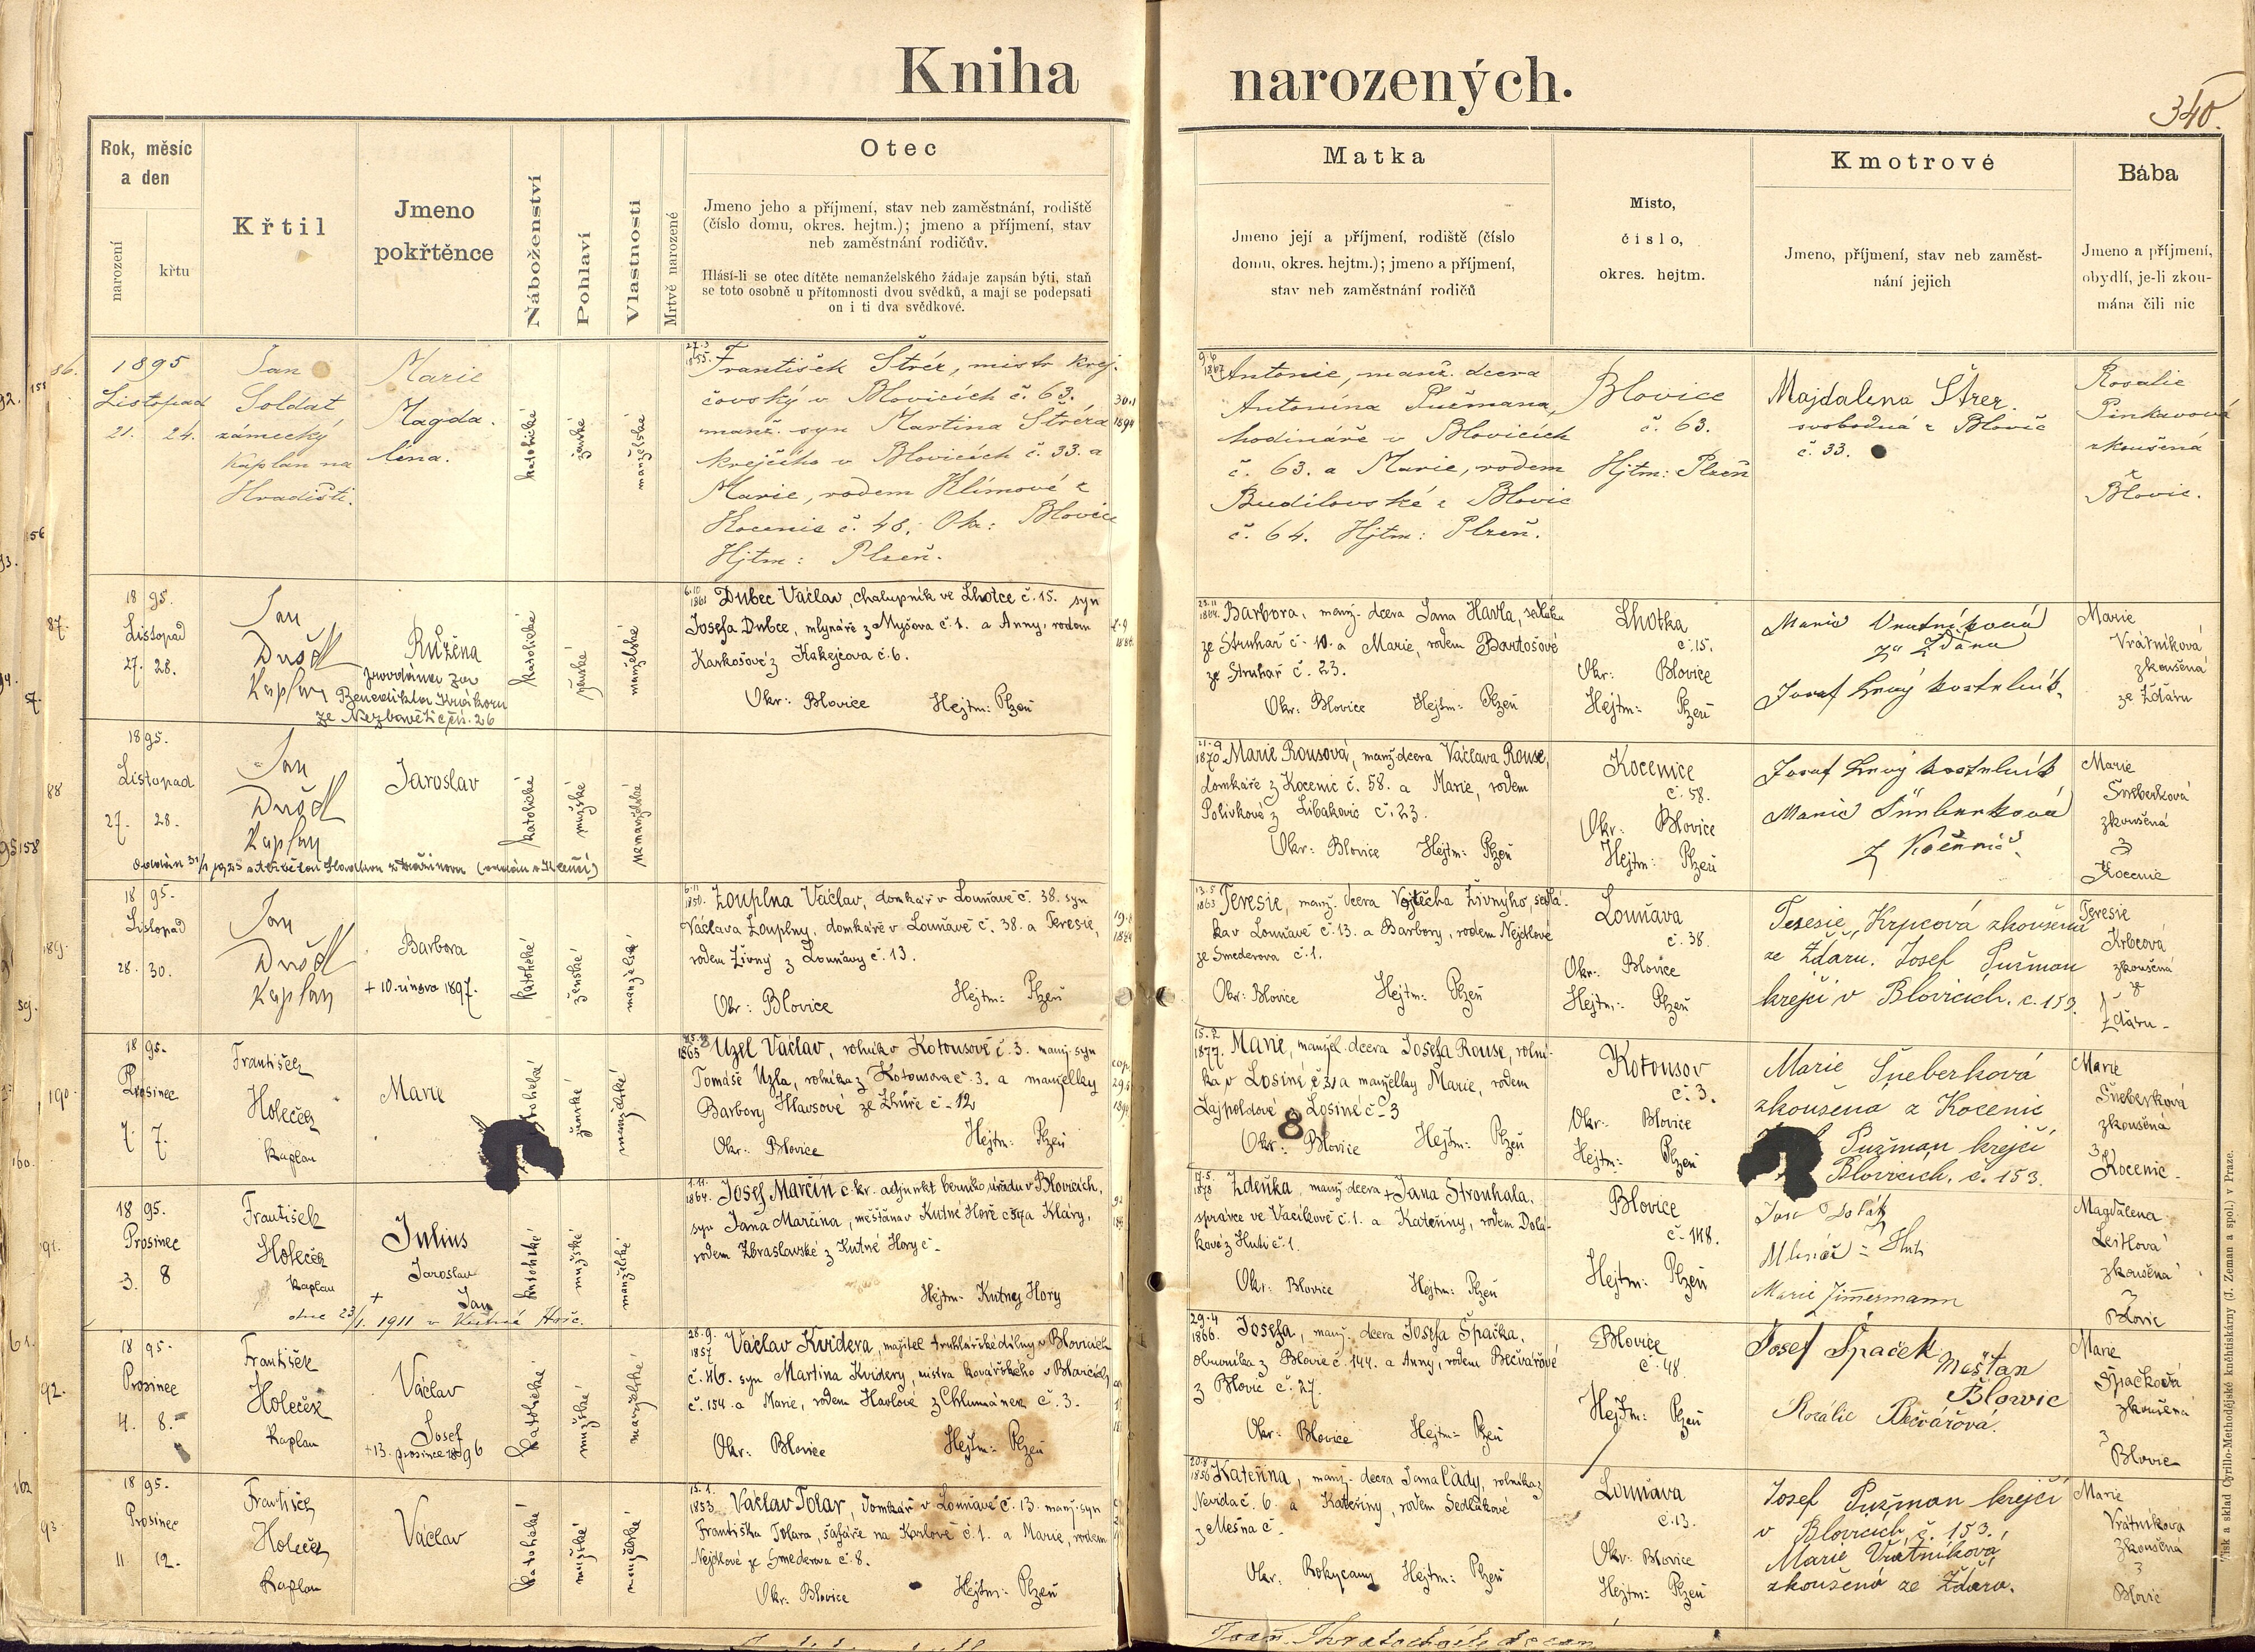 Kniha narozených.
340.
Rok, měsíc
a den
narození
křtu
Křtil
Jmeno
pokřtěnce
Náboženství
Pohlaví
Vlastnosti
Mrtvě narozené
Otec
Jmeno jeho a příjmení, stav neb zaměstnání, rodiště
(číslo domu, okres. hejtm.); jmeno a příjmení, stav
neb zaměstnání rodičův.
Hlásí-li se otec dítěte nemanželského žádaje zapsán býti, staň
se toto osobně u přítomnosti dvou svědků, a mají se podepsati
on i ti dva svědkové.
Matka
Jmeno její a příjmení, rodiště (číslo
domu, okres. hejtm.); jmeno a příjmení,
stav neb zaměstnání rodičů
Místo,
číslo,
okres. hejtm.
Kmotrové
Jmeno, příjmení, stav neb zaměst-
nání jejich
Bába
Jmeno a příjmení,
obydlí, je-li zkou-
mána čili nic
86.
1895
Listopad
21. 24.
Jan
Soldat
zámecký
kaplan na
Hradišti.
Marie
Magda.
lena.
katolické
ženské
manželské
27.3
1855.
František Štrér, mistr krej.
čovský v Blovicích č. 63.
manž. syn Martina Štréra
krejčího v Blovicích č. 33. a
Marie, rodem Klímové z
Kocenic č. 48. Okr: Blovice
Hjtm: Plzeň.
30.1
1894
9.6
1867
Antonie, manž. dcera
Antonína Pužmana,
hodináře v Blovicích
č. 63. a Marie, rodem
Budilovské z Blovic
č. 64. Hjtm: Plzeň.
Blovice
č. 63.
Hjtm: Plzeň
Majdalena Štrer.
svobodná z Blovic
č. 33.
Rosalie
Pinkavová
zkoušená
z
Blovic.
87.
1895.
Listopad
27. 28.
Jan
Dušl
Kaplan
Růžena
provdána za
Benedikta
ze Nezbavětic čp. 26
katolické
ženské
manželské
6.10
1861
Dubec Václav, chalupník ve Lhotce č. 15. syn
Josefa Dubce, mlynáře z Myšova č. 1. a Anny, rodem
Karkošové z Kakejcova č. 6.
Okr: Blovice Hejtm: Plzeň
23.11
1864.
Barbora, manž. dcera Jana Havla, sedláka
ze Struhař č. 10. a Marie, rodem Bartošové
ze Struhař č. 23.
Okr: Blovice Hejtm: Plzeň
Lhotka
č. 15.
Okr: Blovice
Hejtm: Plzeň
Marie Vratníková
ze Žďáru
Josef Levý kostelník.
Marie
Vrátníková
zkoušená
ze Žďáru
88
1895.
Listopad
27. 28.
Jan
Dušl
Kaplan
Jaroslav
katolické
mužské
nemanželské
21.9
1870.
Marie Rousová, manž. dcera Václava Rouse,
domkáře z Kocenic č. 58. a Marie, rodem
Polívkové z Libákovic č. 23.
Okr: Blovice Hejtm: Plzeň
Kocenice
č. 58.
Okr: Blovice
Hejtm: Plzeň
Josef Levý kostelník
Marie Šneberková
z Kocenic.
Marie
Šneberková
zkoušená
z
Kocenic
189.
1895.
Listopad
28. 30.
Jan
Dušl
Kaplan
Barbora
+ 10. února 1897.
katolické
ženské
manželské
6.11
1850.
Zouplna Václav, domkář v Louňavě č. 38. syn
Václava Zouplny, domkáře v Louňavě č. 38. a Teresie,
rodem Živný z Louňavy č. 13.
Okr: Blovice Hejtm: Plzeň
13.5
1863
Teresie, manž. dcera Vojtěcha Živnýho, sedlá-
ka v Louňavě č. 13. a Barbory, rodem Nejdlové
ze Smederova č. 1.
Okr: Blovice Hejtm: Plzeň
Louňava
č. 38.
Okr: Blovice
Hejtm: Plzeň
Teresie, Krpcová zkoušená
ze Žďáru. Josef Pužman
krejčí v Blovicích. č. 153.
Teresie
Krbcová
zkoušená
ze
Žďáru.
190.
1895.
Prosinec
7.
František
Holeček
kaplan
Marie
katolické
ženské
manželské
1865
Uzel Václav, rolník v Kotousově č. 3. manž. syn
Tomáše Uzla, rolníka z Kotousova č. 3. a manželky
Barbory Hlavsové ze Zhůře č. 12
Okr: Blovice Hejtm: Plzeň
15.2
1877.
Marie, manžel. dcera Josefa Rouse, rolní-
ka v Losiné č. 31 a manželky Marie, rodem
Lajpoldové z Losiné č. 3
Okr: Blovice Hejtm: Plzeň
8
Kotousov
č. 3.
Okr: Blovice
Hejtm: Plzeň
Marie Šneberková
zkoušena z Kocenic
Pužman krejčí
Blovicích, č. 153.
Marie
Šneberková
zkoušená
z
Kocenic.
191.
1895.
Prosinec
3. 8
František
Holeček
kaplan
Julius
Jaroslav
Jan
+ dne 23/1. 1911 v Kutné Hoře.
katolické
mužské
manželské
1.11.
1864.
Josef Marčin c. kr. adjunkt berního úřadu v Blovicích,
syn Jana Marčina, měšťana v Kutné Hoře a Kláry,
rodem Zbraslavské z Kutné Hory č.
Hejtm: Kutnej Hory
17.5.
1878.
Zdeňka, manž. dcera + Jana Strouhala,
správce ve Vacíkově č. 1. a Kateřiny, rodem Dolá-
kové z Huti č. 1.
Okr: Blovice Hejtm: Plzeň
Blovice
č. 148.
Hejtm: Plzeň
Mlynář z Huti
Marie Zimmermann
Magdalena
Leitlová
zkoušená
z
Blovic
92.
1895.
Prosinec
4. 8.
František
Holeček
kaplan
Václav
Josef
+ 13. prosince 1896
katolické
mužské
manželské
28.9.
1857
Václav Kvidera, majitel truhlářské dílny v Blovicích
č. 48. syn Martina Kvidery, mistra kovářského v Blovicích
č. 154. a Marie, rodem Havlové z Chlumánek č. 3.
Okr: Blovice Hejtm: Plzeň
29.4
1866.
Josefa, manž. dcera Josefa Špačka,
obuvníka z Blovic č. 144. a Anny, rodem Bečvářové
z Blovic č. 27.
Okr: Blovice Hejtm: Plzeň
Blovice
č. 48
Hejtm: Plzeň
Josef Špaček Měšťan
Blowic
Rozálie Bečvářova.
Marie
Špačková
zkoušená
z
Blovic
93.
1895.
Prosinec
11. 12.
František
Holeček
Kaplan
Václav
katolické
mužské
manželské
15.1.
1853.
Václav Tolar, domkář v Louňavě č. 13. manž. syn
Františka Tolara, šafáře na Karlově č. 1. a Marie, rodem
Nejdlové ze Smederova č. 8.
Okr: Blovice Hejtm: Plzeň
20.8
1856
Kateřina, manž. dcera Jana Čády, rolníka z
Nevida č. 6. a Kateřiny, rodem Sedlákové
z Mešna č.
Okr: Rokycany Hejtm: Plzeň
Louňava
č. 13.
Okr: Blovice
Hejtm: Plzeň
Josef Pužman krejčí
v Blovicích, č. 153.
Marie Vratníková,
zkoušená ze Žďáru.
Marie
Vrátníkova
zkoušená
z
Blovic
Tisk a sklad Cyrillo-Methodějské knihtiskárny (J. Zeman a spol.) v Praze.